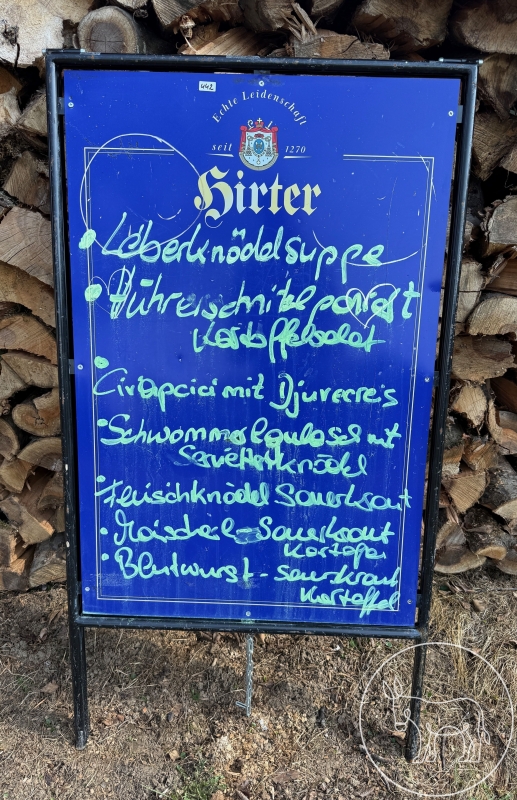 442
Echte Leidenschaft
seit 1270
Hirter
• Leberknödelsuppe
• Hühnerschnitzel paniert
Kartoffelsalat
• Čivapčići mit Djuvecreis
• Schwammerlgulasch mit
Serviettenknödel
• Fleischknödel Sauerkraut
• Maischerl - Sauerkraut
Kartoffel
• Blutwurst - Sauerkraut
Kartoffel